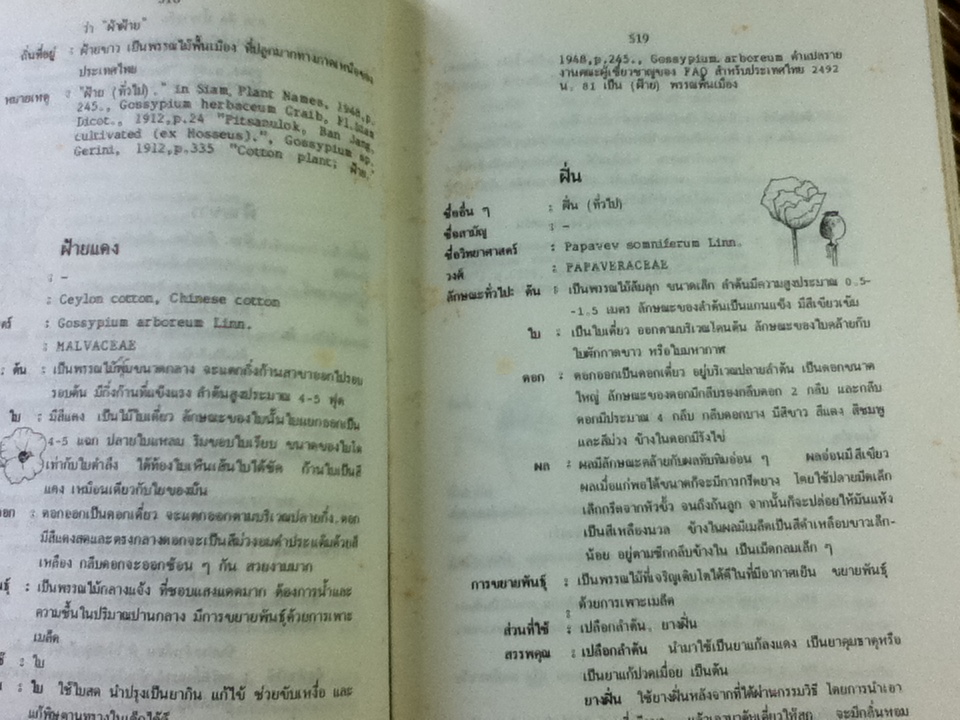 518
ว่า "ผ้าฝ้าย"
ถิ่นที่อยู่ : ฝ้ายขาว เป็นพรรณไม้พื้นเมือง ที่ปลูกมากทางภาคเหนือของ
ประเทศไทย
หมายเหตุ : "ฝ้าย (ทั่วไป)." in Siam. Plant Names, 1948,p.
245., Gossypium herbaceum Craib, Fl.Siam
Dicot., 1912,p.24 "Pitsanulok, Ban Jang,
cultivated (ex Hosseus).", Gossypium sp.
Gerini, 1912,p.335 "Cotton plant; ฝ้าย
ฝ้ายแดง
: -
: Ceylon cotton, Chinese cotton
: Gossypium arboreum Linn.
: MALVACEAE
: ต้น : เป็นพรรณไม้พุ่มขนาดกลาง จะแตกกิ่งก้านสาขาออกไปรอบ
รอบต้น มีกิ่งก้านที่แข็งแรง ลำต้นสูงประมาณ 4-5 ฟุต
ใบ : มีสีแดง เป็นไม้ใบเดี่ยว ลักษณะของใบนั้นใบแยกออกเป็น
4-5 แฉก ปลายใบแหลม ริมขอบใบเรียบ ขนาดของใบโต
เท่ากับใบตำลึง ใต้ท้องใบเห็นเส้นใบได้ชัด ก้านใบเป็นสี
แดง เหมือนเดียวกับใบของมัน
ดอก : ดอกออกเป็นดอกเดี่ยว จะแตกออกตามบริเวณปลายกิ่ง ดอก
มีสีแดงสดและตรงกลางดอกจะเป็นสีม่วงอมดำประแต้มด้วยสี
เหลือง กลีบดอกจะออกซ้อน ๆ กัน สวยงามมาก
: เป็นพรรณไม้กลางแจ้ง ที่ชอบแสงแดดมาก ต้องการน้ำและ
ความชื้นในปริมาณปานกลาง มีการขยายพันธุ์ด้วยการเพาะ
เมล็ด
: ใบ
: ใบ ใช้ใบสด นำปรุงเป็นยากิน แก้ไข้ ช่วยขับเหงื่อ และ
แก้พิษตานทรางในเด็กได้ดี
519
1948,p.245., Gossypium arboreum คำแปลราย
งานคณะผู้เชี่ยวชาญของ FAO สำหรับประเทศไทย 2492
น. 81 เป็น (ฝ้าย) พรรณพื้นเมือง
ฝิ่น
ชื่ออื่น ๆ : ฝิ่น (ทั่วไป)
ชื่อสามัญ : -
ชื่อวิทยาศาสตร์ : Papavev somniferum Linn.
วงศ์ : PAPAVERACEAE
ลักษณะทั่วไป: ต้น : เป็นพรรณไม้ล้มลุก ขนาดเล็ก ลำต้นมีความสูงประมาณ 0.5-
-1.5 เมตร ลักษณะของลำต้นเป็นแกนแข็ง มีสีเขียวเข้ม
ใบ : เป็นใบเดี่ยว ออกตามบริเวณโคนต้น ลักษณะของใบคล้ายกับ
ใบผักกาดขาว หรือใบมหากาฬ
ดอก : ดอกออกเป็นดอกเดี่ยว อยู่บริเวณปลายลำต้น เป็นดอกขนาด
ใหญ่ ลักษณะของดอกมีกลีบรองกลีบดอก 2 กลีบ และกลีบ
ดอกมีประมาณ 4 กลีบ กลีบดอกบาง มีสีขาว สีแดง สีชมพู
และสีม่วง ข้างในดอกมีรังไข่
ผล : ผลมีลักษณะคล้ายกับผลทับทิมอ่อน ๆ ผลอ่อนมีสีเขียว
ผลเมื่อแก่พอได้ขนาดก็จะมีการกรีดยาง โดยใช้ปลายมีดเล็ก
เล็กกรีดจากหัวขั้ว จนถึงก้นลูก จากนั้นก็จะปล่อยให้มันแห้ง
เป็นสีเหลืองนวล ข้างในผลมีเมล็ดเป็นสีดำเหลือบขาวเล็ก-
น้อย อยู่ตามซีกกลีบข้างใน เป็นเม็ดกลมเล็ก ๆ
การขยายพันธุ์ : เป็นพรรณไม้ที่เจริญเติบโตได้ดีในที่มีอากาศเย็น ขยายพันธุ์
ด้วยการเพาะเมล็ด
ส่วนที่ใช้ : เปลือกลำต้น, ยางฝิ่น
สรรพคุณ : เปลือกลำต้น นำมาใช้เป็นยาแก้ลงแดง เป็นยาคุมธาตุหรือ
เป็นยาแก้ปวดเมื่อย เป็นต้น
ยางฝิ่น ใช้ยางฝิ่นหลังจากที่ได้ผ่านกรรมวิธี โดยการนำเอา
แล้วเอามาต้มเคี่ยวให้สุก จะมีกลิ่นหอม